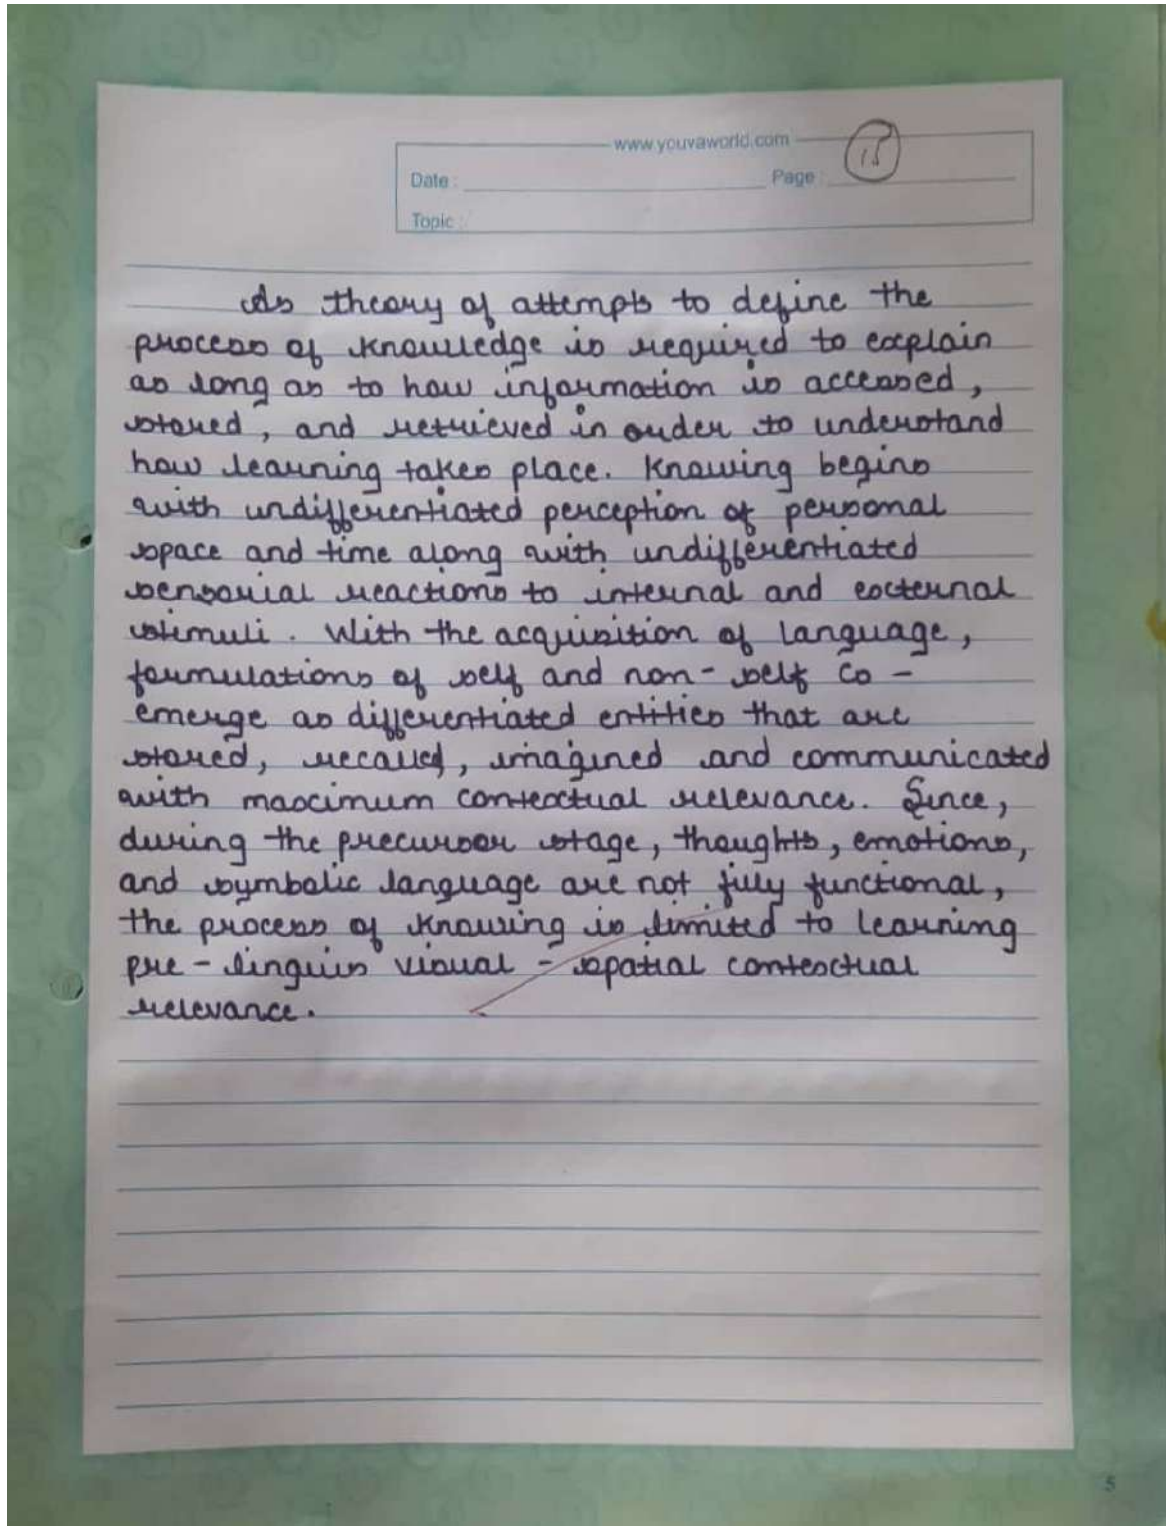 www.youvaworld.com
15
Date :
Page :
Topic :
As theory of attempts to define the
process of knowledge is required to explain
as long as to how information is accessed,
stored, and retrieved in order to understand
how learning takes place. Knowing begins
with undifferentiated perception of personal
space and time along with undifferentiated
sensorial reactions to internal and external
stimuli. With the acquisition of language,
formulations of self and non-self co-
emerge as differentiated entities that are
stored, recalled, imagined and communicated
with maximum contextual relevance. Since,
during the precursor stage, thoughts, emotions,
and symbolic language are not fully functional,
the process of knowing is limited to learning
pre-linguis visual-spatial contextual
relevance.
5